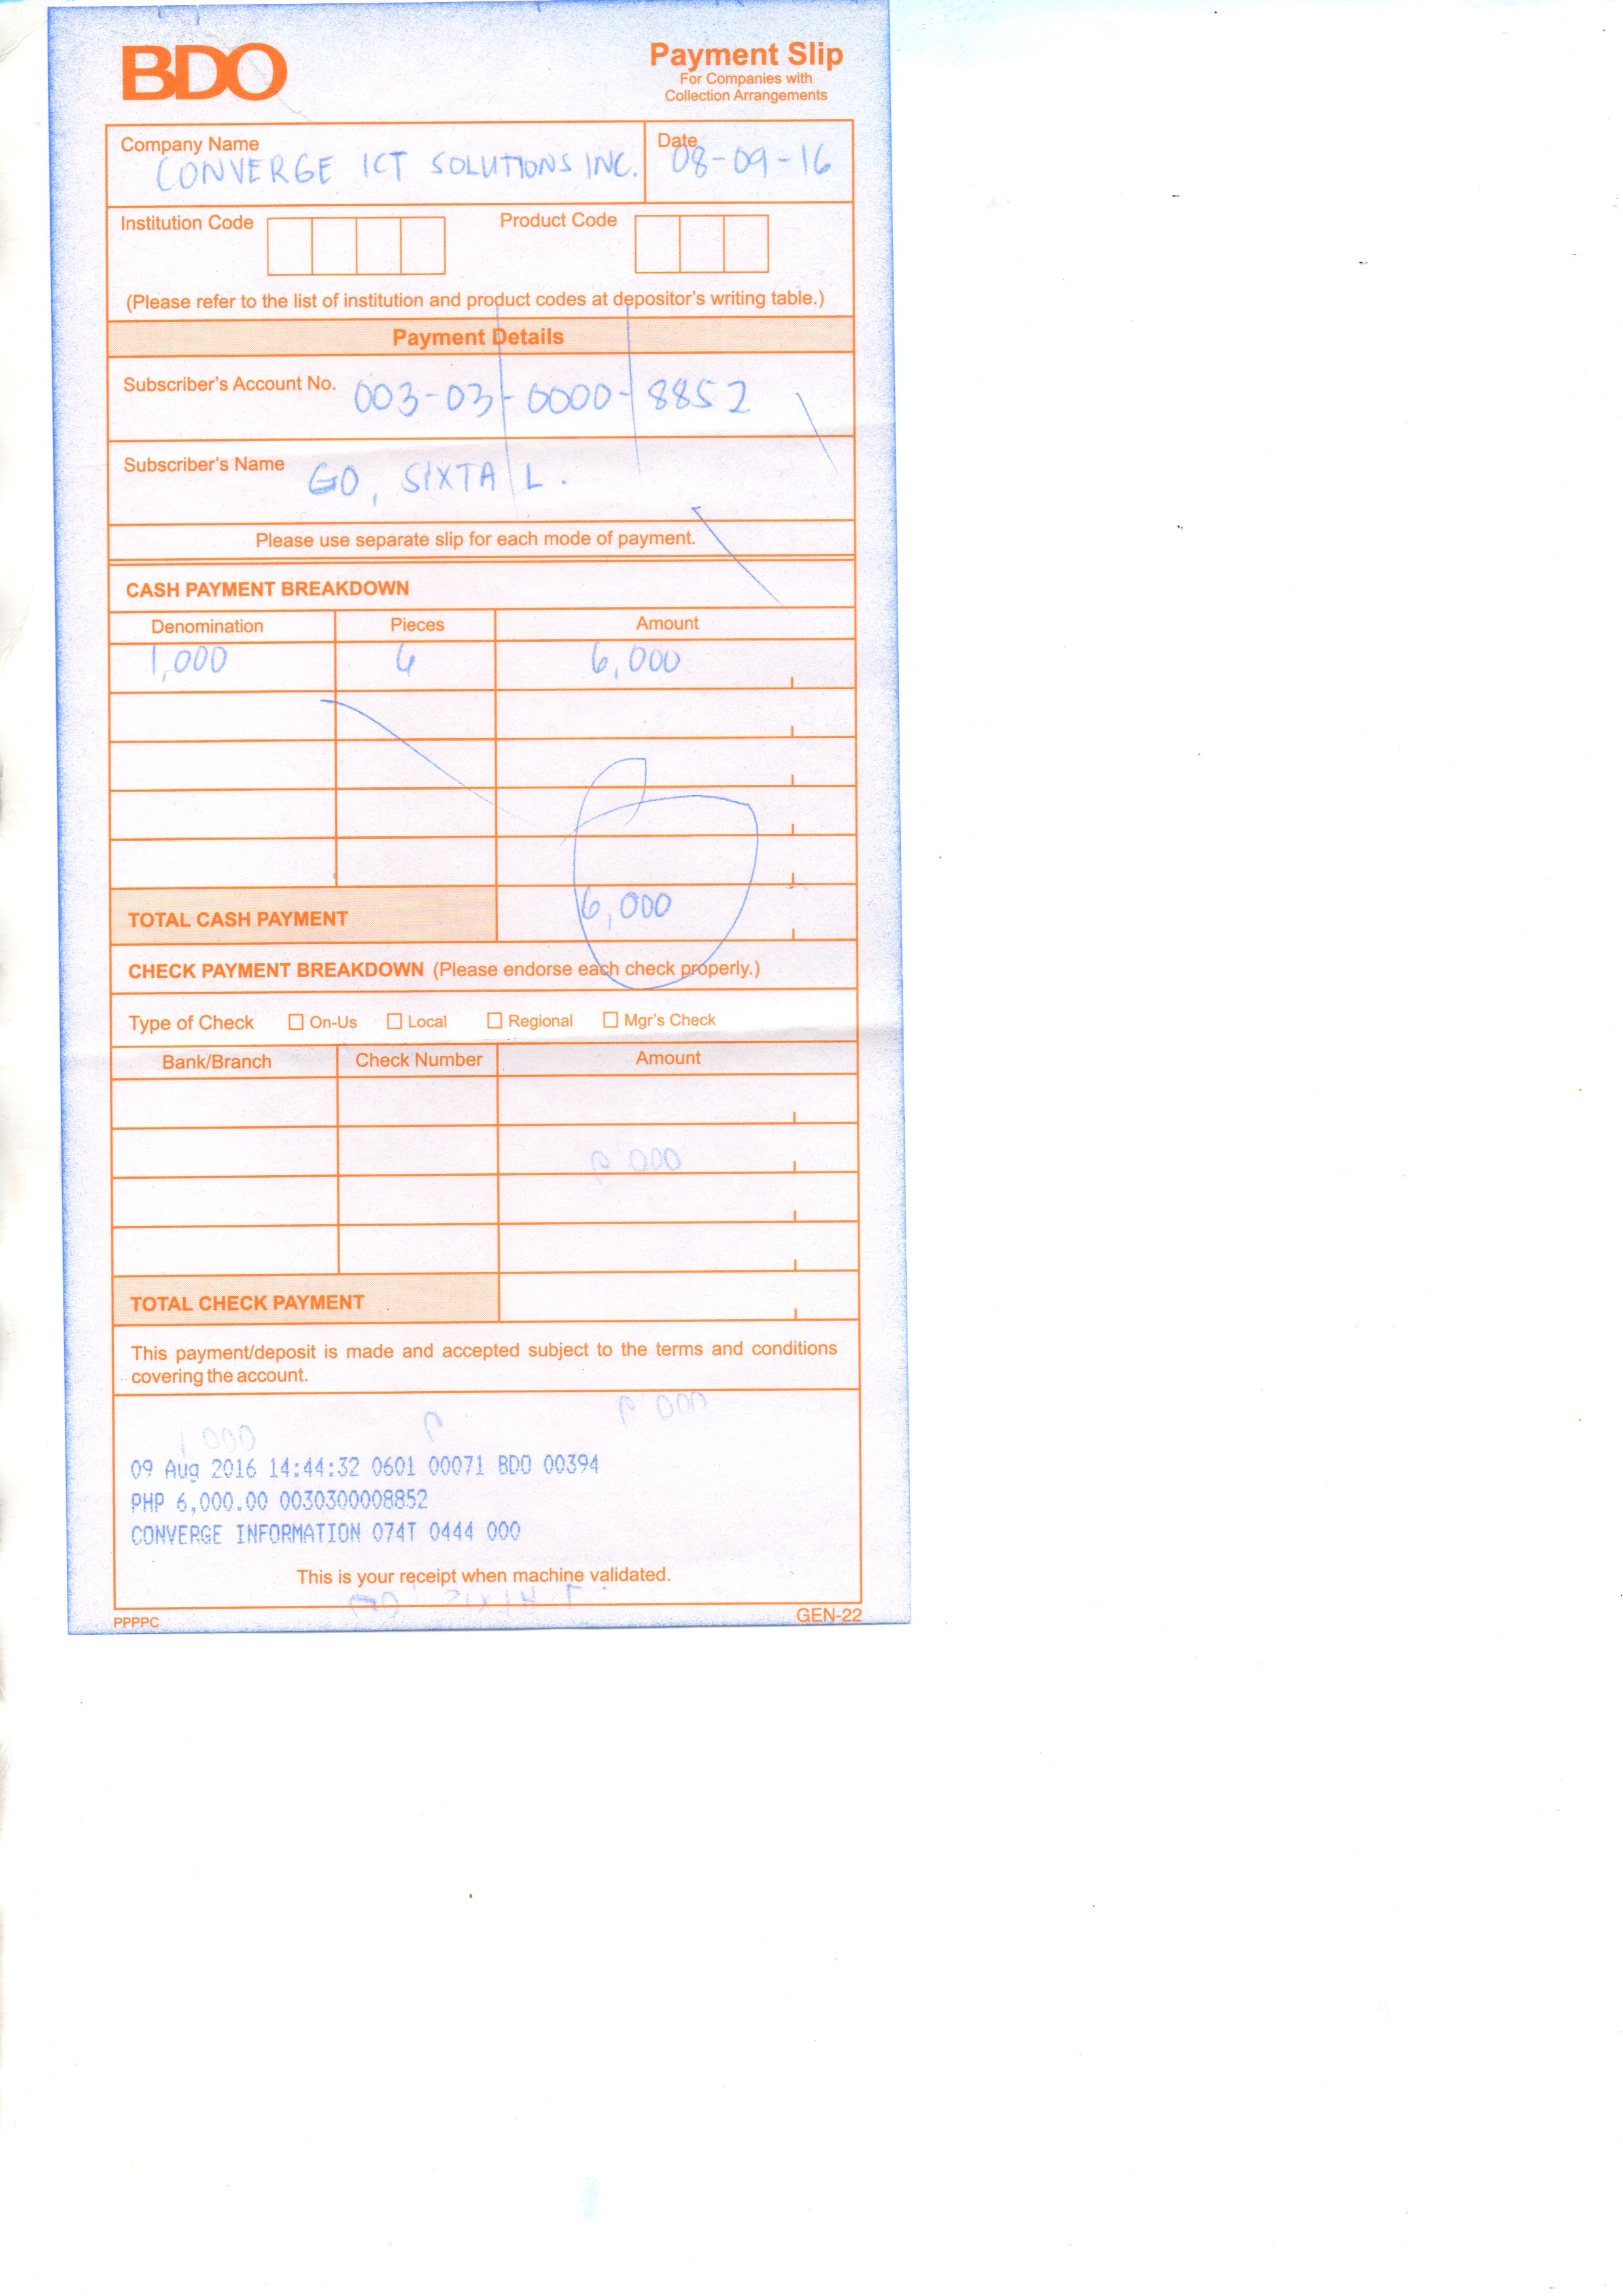 BDO
Payment Slip
For Companies with
Collection Arrangements
Company Name
CONVERGE ICT SOLUTIONS INC.
Date
08-09-16
Institution Code
Product Code
(Please refer to the list of institution and product codes at depositor's writing table.)
Payment Details
Subscriber's Account No. 003-03-0000-8852
Subscriber's Name GO, SIXTA L.
Please use separate slip for each mode of payment.
CASH PAYMENT BREAKDOWN
Denomination Pieces Amount
1,000 6 6,000
TOTAL CASH PAYMENT 6,000
CHECK PAYMENT BREAKDOWN (Please endorse each check properly.)
Type of Check On-Us Local Regional Mgr's Check
Bank/Branch Check Number Amount
TOTAL CHECK PAYMENT
This payment/deposit is made and accepted subject to the terms and conditions
covering the account.
09 Aug 2016 14:44:32 0601 00071 BDO 00394
PHP 6,000.00 0030300008852
CONVERGE INFORMATION 074T 0444 000
This is your receipt when machine validated.
PPPPC
GEN-22